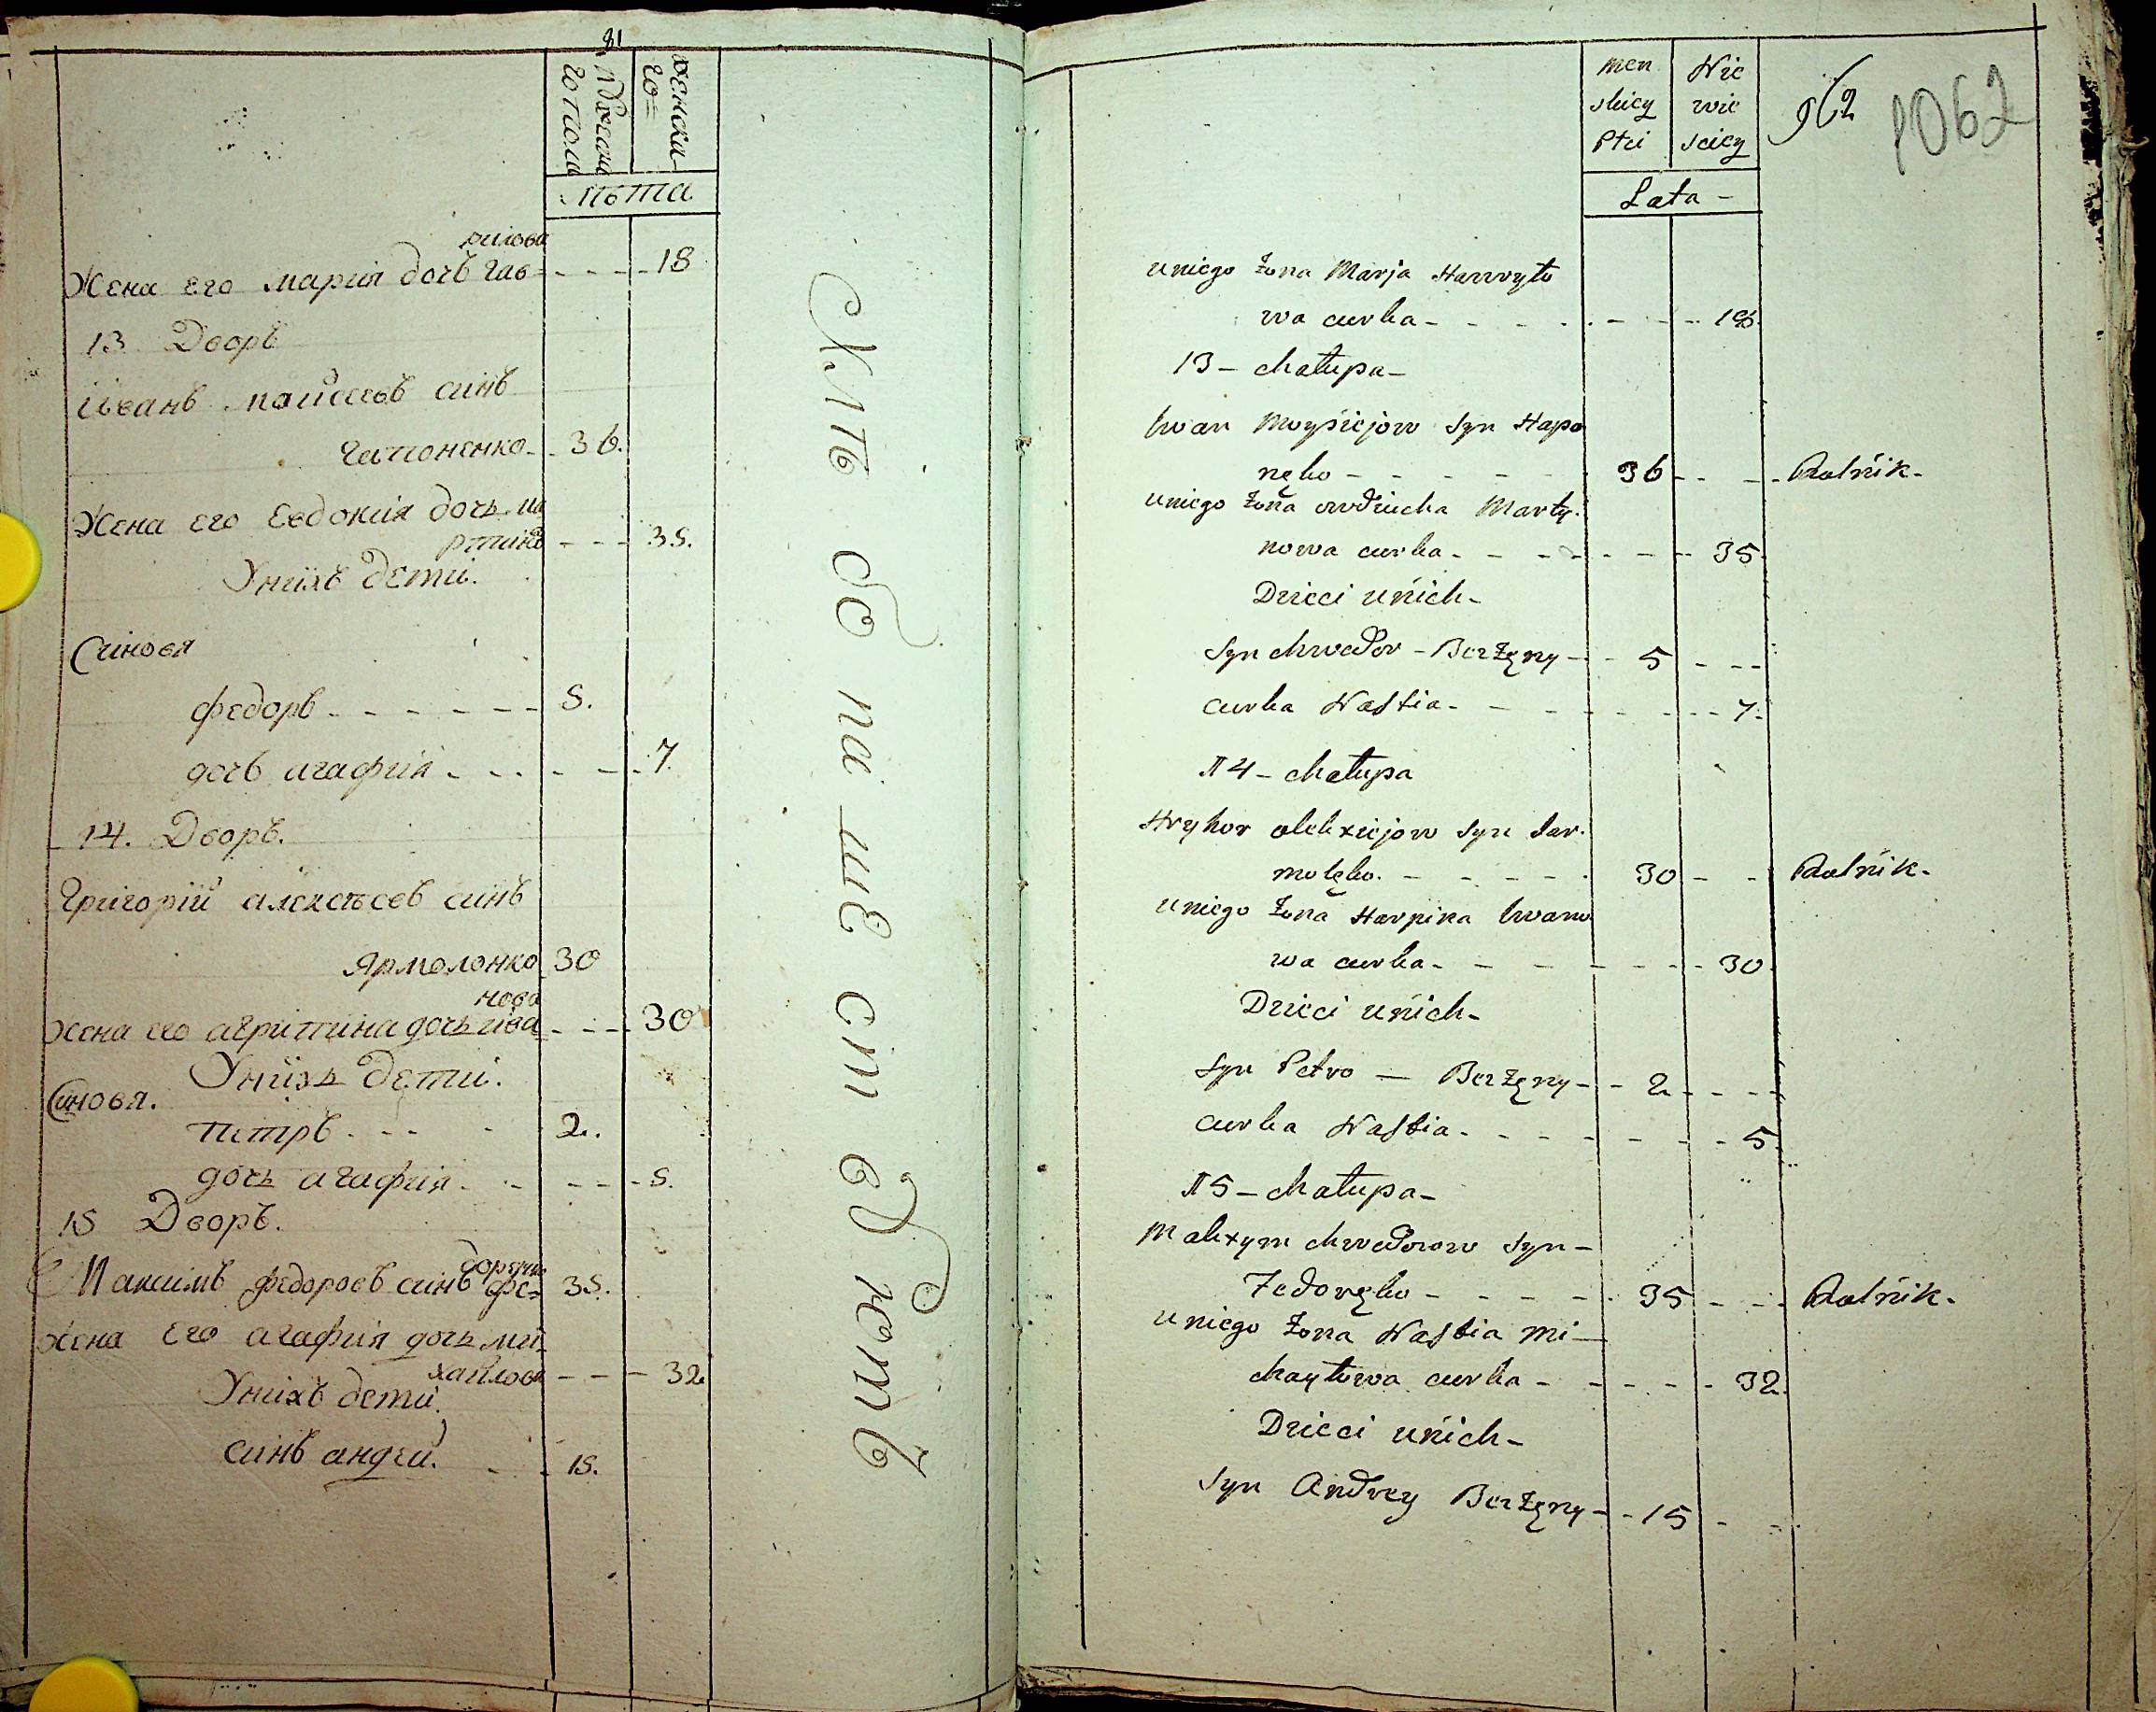 81
мужеска
го пола
женска
го
лѣта
рилова
Жена его мария дочъ гав= 18
13 Дворъ
Иванъ моисеевъ синъ
Гапоненко 36.
Жена его Евдокия дочь ма
ртинова 35.
Унихъ дети.
Синовя
федоръ 5.
дочъ агафия 7.
14. Дворъ.
Григорий алексѣевъ синъ
Ярмоленко 30
нова
жена его агрипина дочь ива= 30
Унихъ дети.
Синовя.
петръ 2.
дочь агафия 5.
15 Дворъ.
доренко
Максимъ федоровъ синъ фе= 35.
жена его агафия дочь ми
хайлова 32
Унихъ дети.
синъ андрей. 15.
men
skiey
Płci
Nie
wie
sciey
Lata -
962
1062
uniego żona Marja Hawryło
wa curka - 18.
13 - chałupa -
Iwan Moysiejow Syn Hapo
nęko - 36 - Rolnik -
uniego żona owdiucha Marty.
nowa curka - 35
Dzieci unich -
Syn chwedor - Bezżęny - 5
curka Nastia - 7.
14 - chałupa
Hryhor olexiejow Syn Jar.
molęko. - 30 - Rolnik -
uniego żona Harpina Iwano
wa curka - 30
Dzieci unich -
Syn Petro - Bezżęny - 2
curka Nastia - 5
15 - chałupa -
Maxym chwedorow Syn -
Fedoręko - 35 - Rolnik -
uniego żona Nastia Mi -
chayłowa curka - 32
Dzieci unich -
Syn Andrey Bezżęny - 15